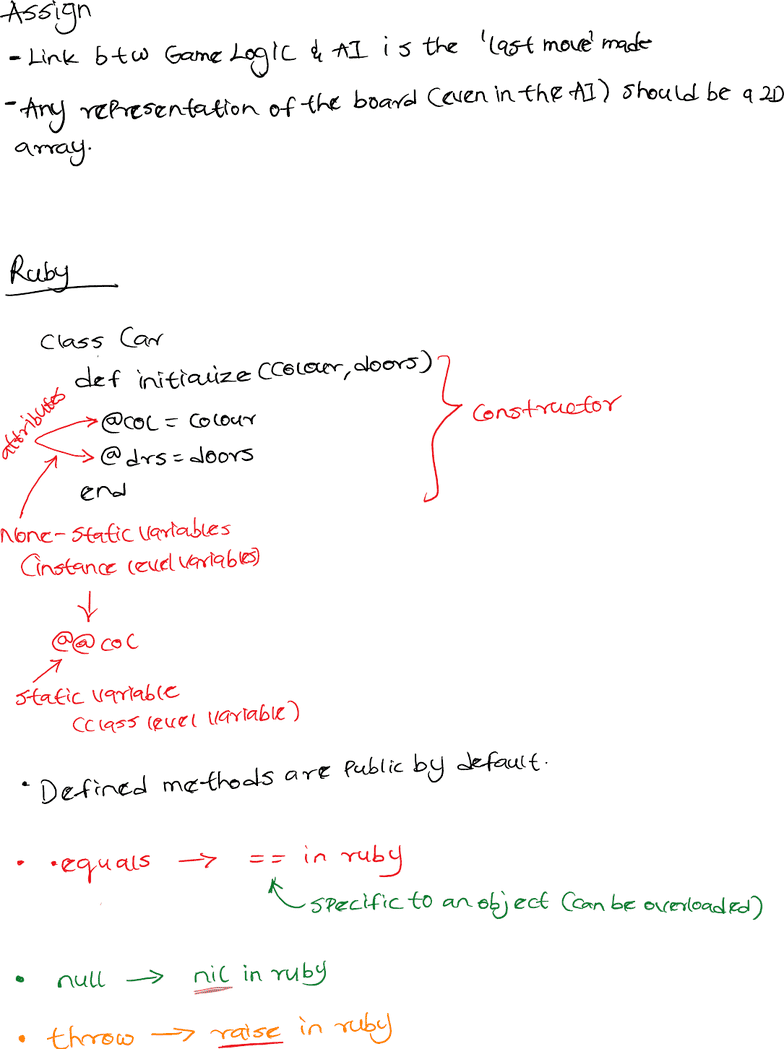 Assign
- Link btw Game Logic & AI is the 'last move' made
- Any representation of the board (even in the AI) should be a 2D
array.
Ruby
class Car
def initialize (colour, doors)
attributes
@col = colour
constructor
@drs = doors
end
None-static variables
(instance level variables)
@@col
static variable
(class level variable)
• Defined methods are public by default.
• .equals → == in ruby
specific to an object (can be overloaded)
• null → nil in ruby
• throw → raise in ruby